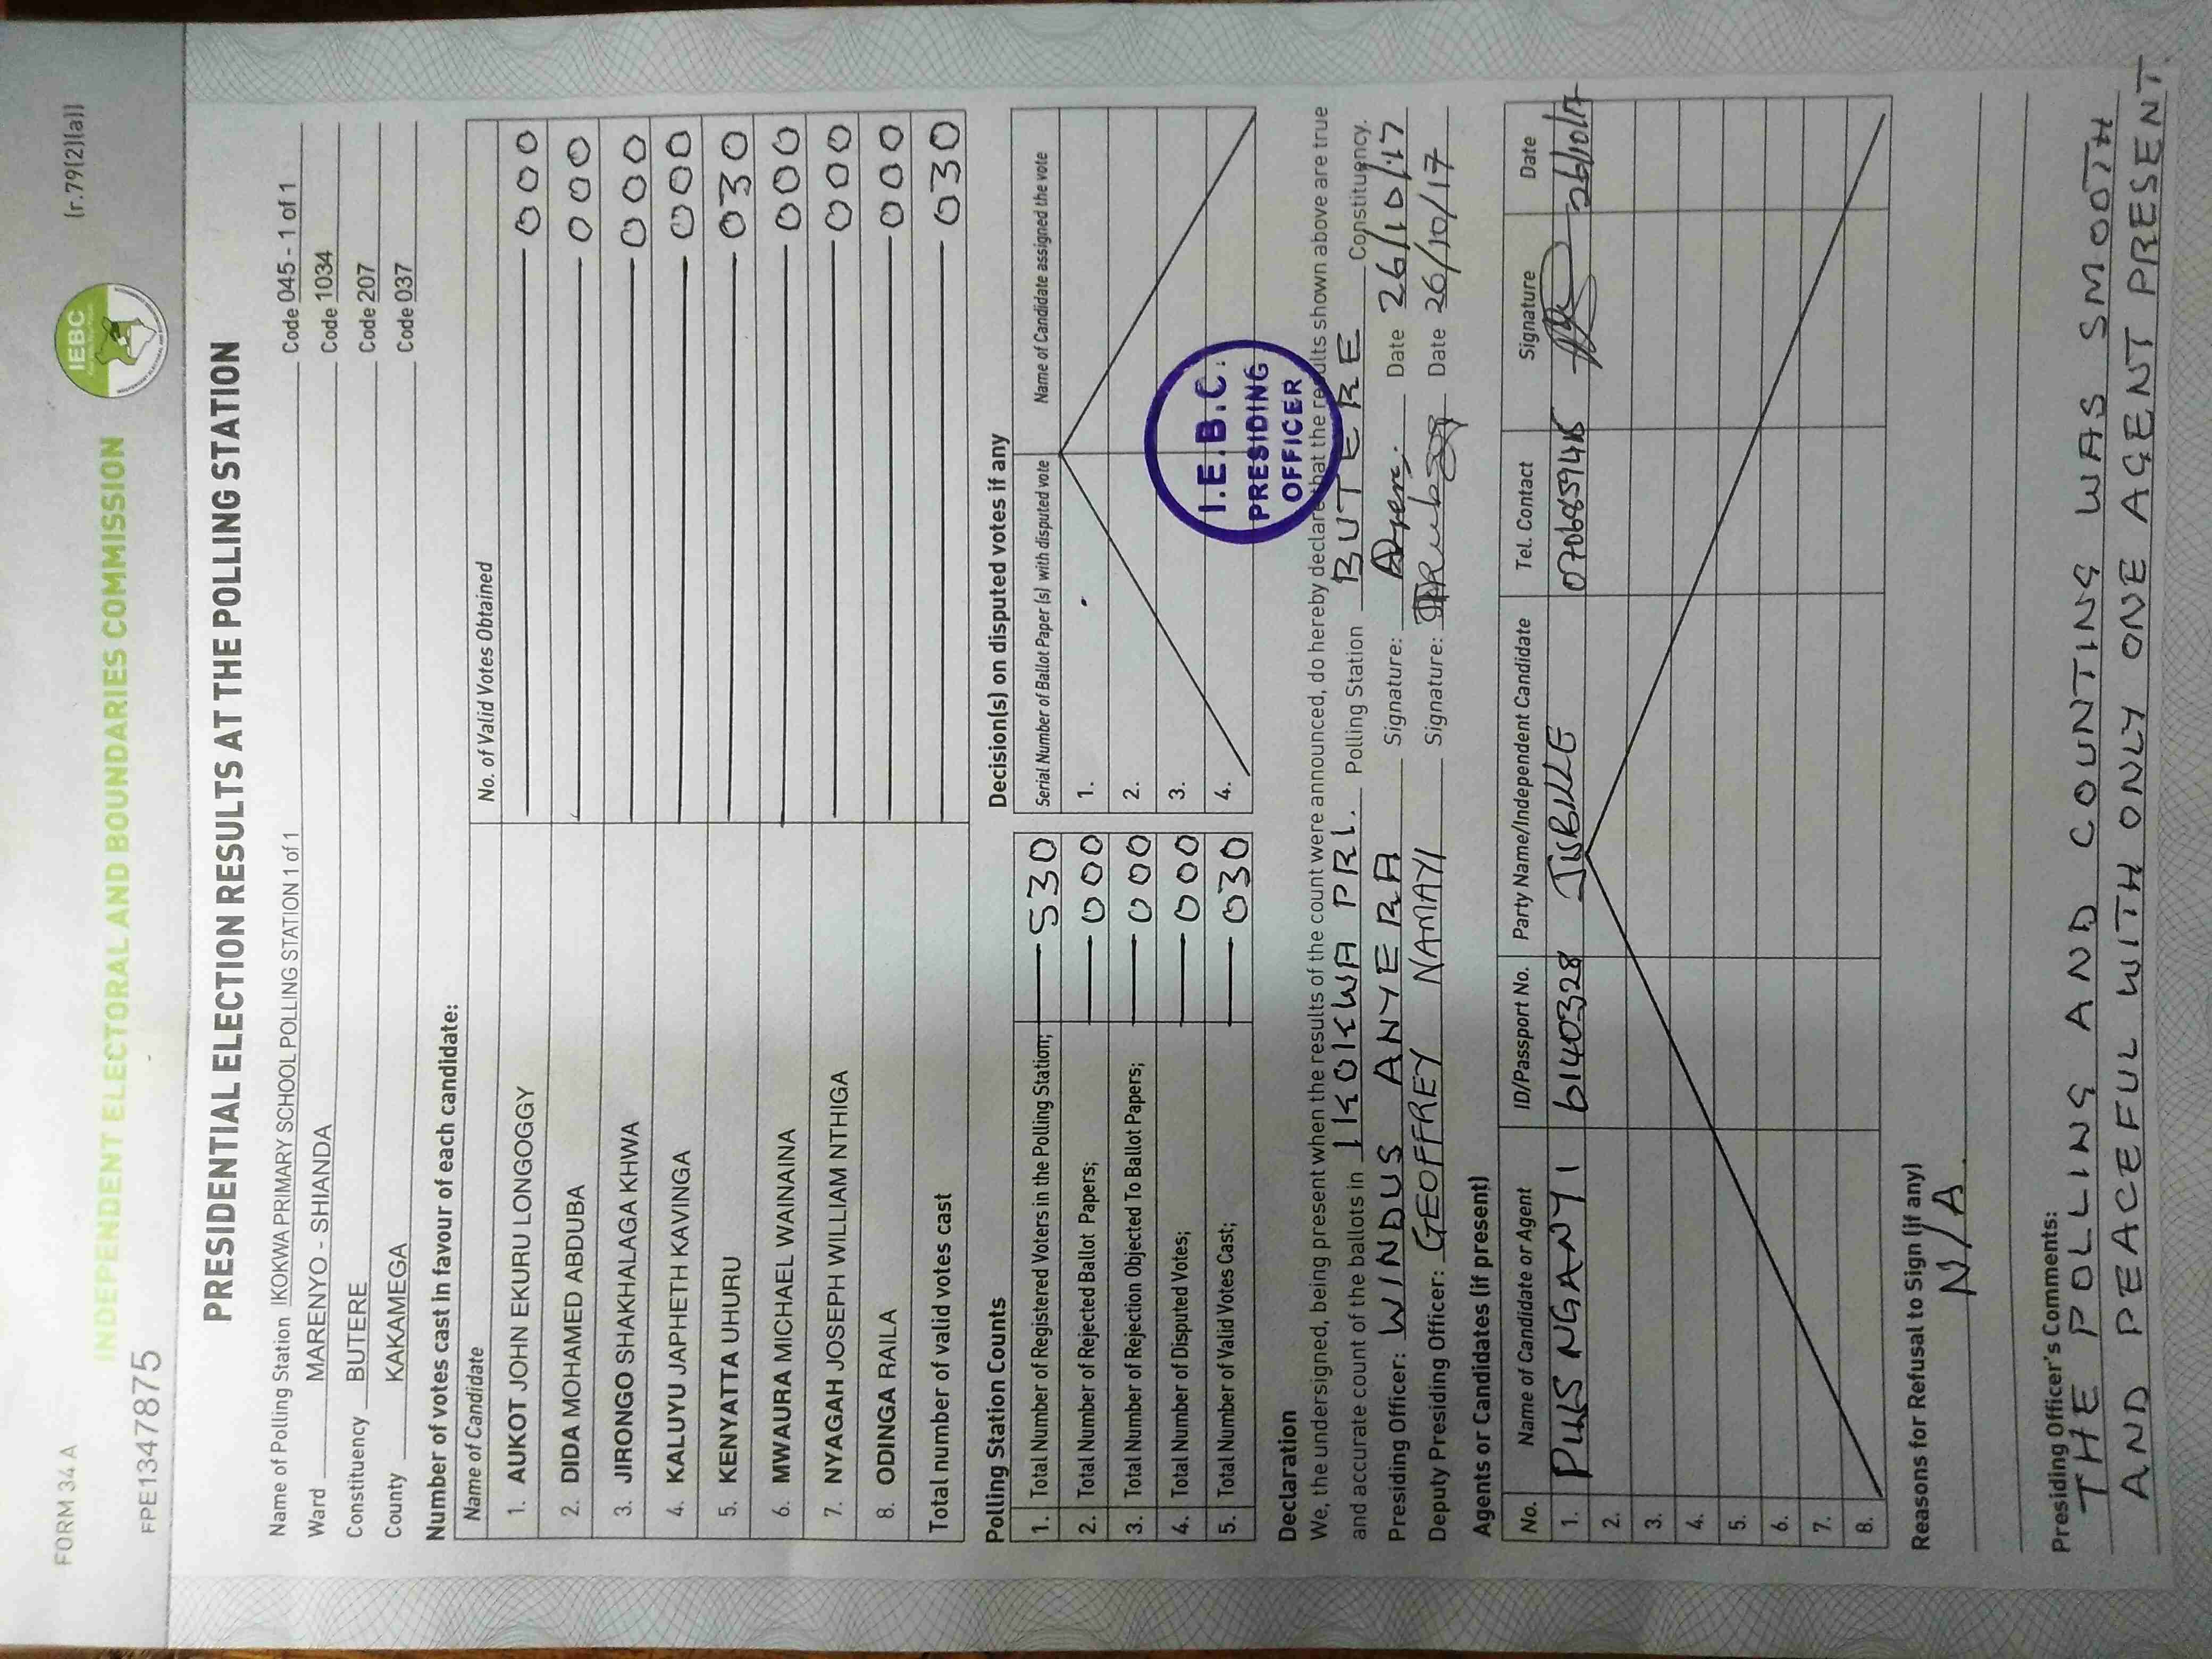 FORM 34 A
(r.79(2)(a))
INDEPENDENT ELECTORAL AND BOUNDARIES COMMISSION
IEBC
FPE1347875
PRESIDENTIAL ELECTION RESULTS AT THE POLLING STATION
Name of Polling Station IKOKWA PRIMARY SCHOOL POLLING STATION 1 of 1 Code 045 - 1 of 1
Ward MARENYO - SHIANDA Code 1034
Constituency BUTERE Code 207
County KAKAMEGA Code 037
Number of votes cast in favour of each candidate:
Name of Candidate No. of Valid Votes Obtained
1. AUKOT JOHN EKURU LONGOGGY 000
2. DIDA MOHAMED ABDUBA 000
3. JIRONGO SHAKHALAGA KHWA 000
4. KALUYU JAPHETH KAVINGA 000
5. KENYATTA UHURU 030
6. MWAURA MICHAEL WAINAINA 000
7. NYAGAH JOSEPH WILLIAM NTHIGA 000
8. ODINGA RAILA 000
Total number of valid votes cast 030
Polling Station Counts
1. Total Number of Registered Voters in the Polling Station; 530
2. Total Number of Rejected Ballot Papers; 000
3. Total Number of Rejection Objected To Ballot Papers; 000
4. Total Number of Disputed Votes; 000
5. Total Number of Valid Votes Cast; 030
Decision(s) on disputed votes if any
Serial Number of Ballot Paper (s) with disputed vote Name of Candidate assigned the vote
1.
2.
3.
4.
I.E.B.C.
PRESIDING
OFFICER
Declaration
We, the undersigned, being present when the results of the count were announced, do hereby declare that the results shown above are true
and accurate count of the ballots in IKOKWA PRI. Polling Station BUTERE Constituency.
Presiding Officer: WINDUS ANYERA Signature: Date 26/10/17
Deputy Presiding Officer: GEOFFREY NAMAYI Signature: Date 26/10/17
Agents or Candidates (if present)
No. Name of Candidate or Agent ID/Passport No. Party Name/Independent Candidate Tel. Contact Signature Date
1. PIUS NGANYI 26/10/17
2.
3.
4.
5.
6.
7.
8.
Reasons for Refusal to Sign (if any)
N/A.
Presiding Officer's Comments:
THE POLLING AND COUNTING WAS SMOOTH
AND PEACEFUL WITH ONLY ONE AGENT PRESENT.